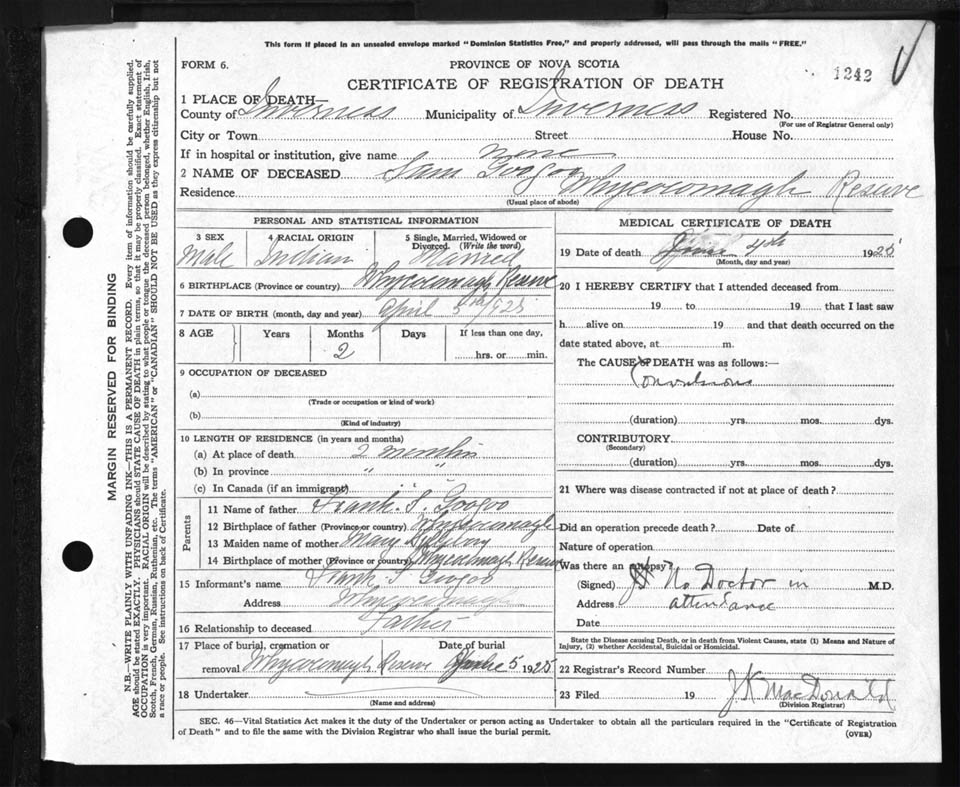 This form if placed in an unsealed envelope marked "Dominion Statistics Free," and properly addressed, will pass through the mails "FREE."
FORM 6.
PROVINCE OF NOVA SCOTIA
1242
CERTIFICATE OF REGISTRATION OF DEATH
1 PLACE OF DEATH—
County of Inverness Municipality of Inverness Registered No.
(For use of Registrar General only)
City or Town Street House No.
If in hospital or institution, give name none
2 NAME OF DECEASED Sam Googoo
Residence Whycocomagh Reserve
(Usual place of abode)
PERSONAL AND STATISTICAL INFORMATION
3 SEX 4 RACIAL ORIGIN 5 Single, Married, Widowed or Divorced (Write the word)
Male Indian Married
6 BIRTHPLACE (Province or country) Whycocomagh Reserve
7 DATE OF BIRTH (month, day and year) April 5th 1925
8 AGE Years Months Days If less than one day,
2 hrs. or min.
9 OCCUPATION OF DECEASED
(a)
(Trade or occupation or kind of work)
(b)
(Kind of industry)
10 LENGTH OF RESIDENCE (in years and months)
(a) At place of death 2 months
(b) In province " "
(c) In Canada (if an immigrant) " "
Parents
11 Name of father Frank S. Googoo
12 Birthplace of father (Province or country) Whycocomagh
13 Maiden name of mother Mary
14 Birthplace of mother (Province or country) Whycocomagh Reserve
15 Informant's name Frank S Googoo
Address Whycocomagh
16 Relationship to deceased Father
17 Place of burial, cremation or Date of burial
removal Whycocomagh Reserve June 5 1925
18 Undertaker
(Name and address)
MEDICAL CERTIFICATE OF DEATH
19 Date of death June 4th 1925
(Month, day and year)
20 I HEREBY CERTIFY that I attended deceased from
19 to 19 that I last saw
h alive on 19 and that death occurred on the
date stated above, at m.
The CAUSE OF DEATH was as follows:—
Convulsions
(duration) yrs. mos. dys.
CONTRIBUTORY
(Secondary)
(duration) yrs. mos. dys.
21 Where was disease contracted if not at place of death?
Did an operation precede death? Date of
Nature of operation
Was there an autopsy?
(Signed) No Doctor in M.D.
Address attendance
Date
State the Disease causing Death, or in death from Violent Causes, state (1) Means and Nature of Injury, (2) whether Accidental, Suicidal or Homicidal.
22 Registrar's Record Number
23 Filed 19 J K MacDonald
(Division Registrar)
SEC. 46—Vital Statistics Act makes it the duty of the Undertaker or person acting as Undertaker to obtain all the particulars required in the "Certificate of Registration
of Death" and to file the same with the Division Registrar who shall issue the burial permit.
(OVER)
MARGIN RESERVED FOR BINDING
N.B.—WRITE PLAINLY WITH UNFADING INK—THIS IS A PERMANENT RECORD. Every item of information should be carefully supplied.
AGE should be stated EXACTLY. PHYSICIANS should STATE CAUSE OF DEATH in plain terms, so that it may be properly classified. Exact statement of
OCCUPATION is very important. RACIAL ORIGIN will be described by stating to what people or tongue the deceased person belonged, whether English, Irish,
Scotch, French, German, Russian, Ruthenian, etc. The terms "AMERICAN" or "CANADIAN" SHOULD NOT BE USED as they express citizenship but not
a race or people. See instructions on back of Certificate.